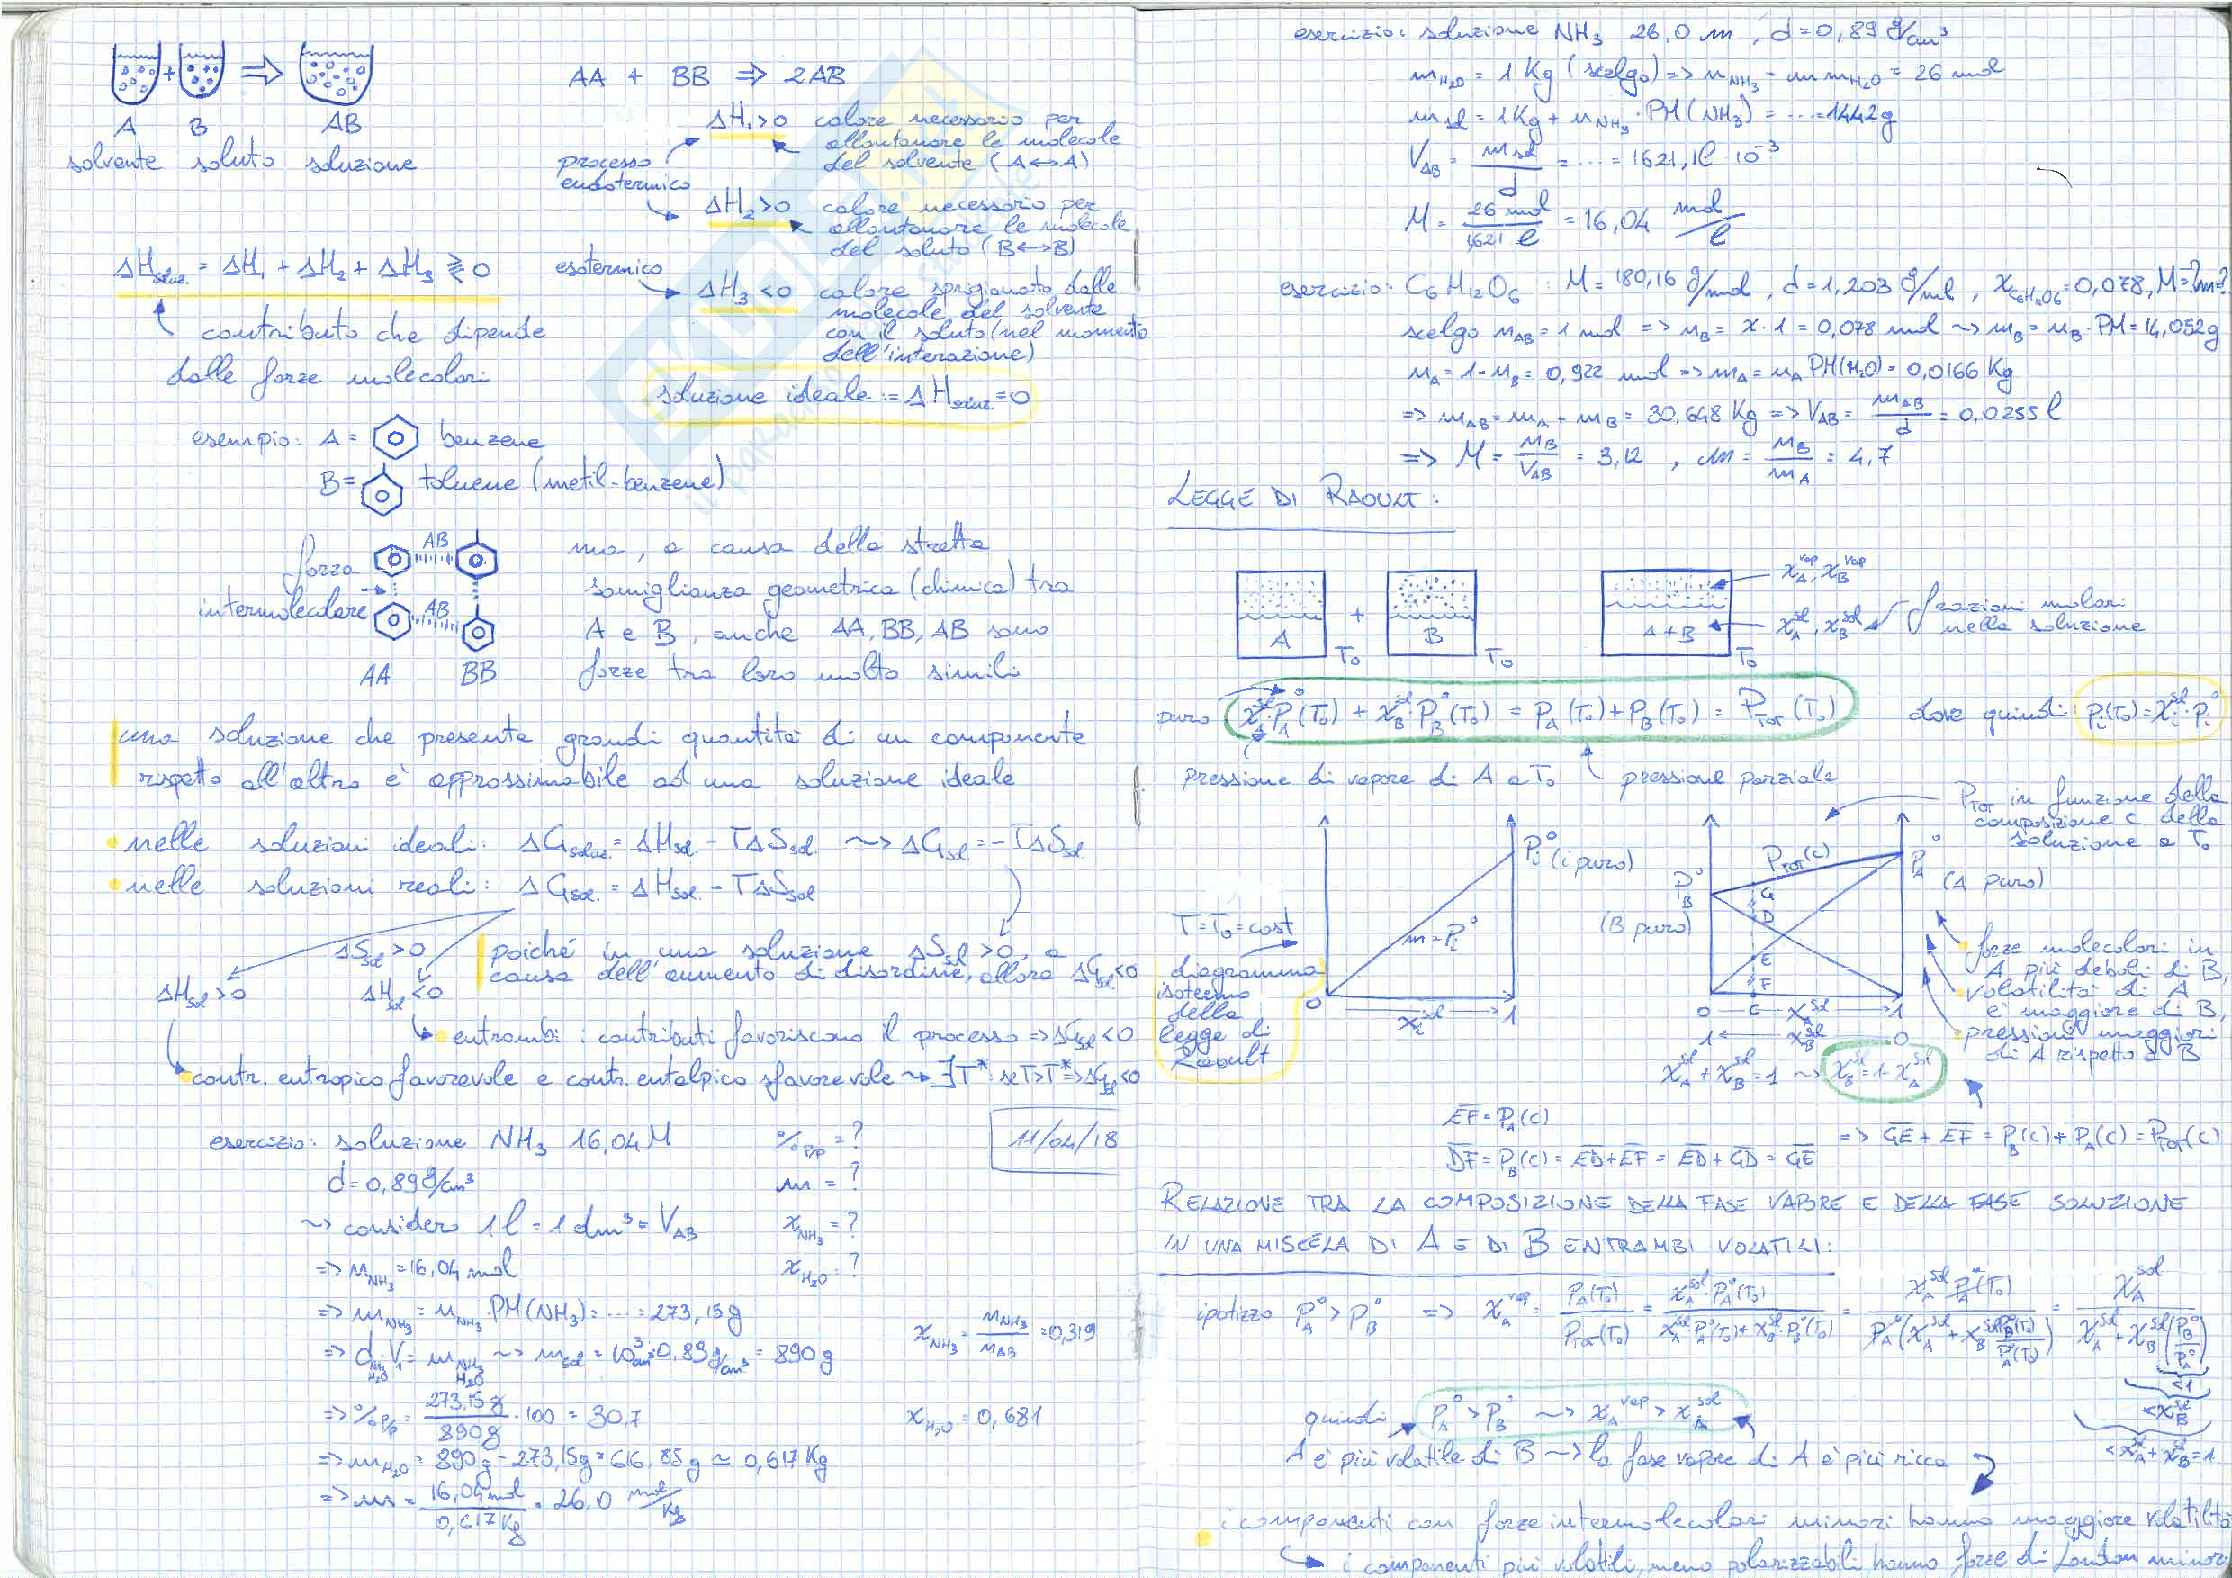 A + B ⇒ AB
solvente soluto soluzione
AA + BB ⇒ 2AB
ΔH₁>0 calore necessario per
allontanare le molecole
del solvente (A↔A)
processo
endotermico
ΔH₂>0 calore necessario per
allontanare le molecole
del soluto (B↔B)
ΔHsoluz. = ΔH₁ + ΔH₂ + ΔH₃ ⪌ 0
esotermico
ΔH₃<0 calore sprigionato dalle
molecole del solvente
con il soluto (nel momento
dell'interazione)
contributo che dipende
dalle forze molecolari
soluzione ideale := ΔHsoluz.=0
esempio: A = benzene
B = toluene (metil-benzene)
forza
intermolecolare
AB
AB
AA BB
ma, a causa della stretta
somiglianza geometrica (chimica) tra
A e B, anche AA, BB, AB sono
forze tra loro molto simili
una soluzione che presenta grandi quantità di un componente
rispetto all'altro è approssimabile ad una soluzione ideale
• nelle soluzioni ideali: ΔGsoluz. = ΔHsol - TΔSsol ⇝ ΔGsol = -TΔSsol
• nelle soluzioni reali: ΔGsol. = ΔHsol - TΔSsol
ΔSsol>0
ΔHsol>0 ΔHsol<0
poiché in una soluzione ΔSsol>0, a
causa dell'aumento di disordine, allora ΔGsol<0
entrambi i contributi favoriscono il processo ⇒ ΔGsol<0
contr. entropico favorevole e contr. entalpico sfavorevole ⇝ ∃T*: se T>T* ⇒ ΔGsol<0
esercizio: soluzione NH₃ 16,04 M %p/p = ?
11/04/18
d = 0,89 g/cm³ m = ?
~> considero 1 l = 1 dm³ = VAB xNH₃ = ?
=> nNH₃ = 16,04 mol xH₂O = ?
=> mNH₃ = nNH₃·PM(NH₃) = ... = 273,15 g
xNH₃ = nNH₃/nAB = 0,319
=> ~> msol = 10³cm³·0,89 g/cm³ = 890 g
=> %p/p = 273,15 g/890 g · 100 = 30,7
xH₂O = 0,681
=> mH₂O = 890 g - 273,15 g = 616,85 g ≃ 0,617 Kg
=> m = 16,04 mol/0,617 Kg = 26,0 mol/Kg
esercizio: soluzione NH₃ 26,0 m, d = 0,89 g/cm³
mH₂O = 1 Kg (scelgo) => nNH₃ = m·mH₂O = 26 mol
msol = 1 Kg + nNH₃·PM(NH₃) = ... = 1442 g
VAB = msol/d = ... = 1621,1 l·10⁻³
M = 26 mol/1,621 l = 16,04 mol/l
esercizio: C₆H₁₂O₆: M = 180,16 g/mol, d = 1,203 g/ml, xC₆H₁₂O₆ = 0,078, M=? m=?
scelgo nAB = 1 mol => nB = x·1 = 0,078 mol ~> mB = nB·PM = 14,052 g
nA = 1 - nB = 0,922 mol => mA = nA PM(H₂O) = 0,0166 Kg
=> mAB = mA - mB = 30,648 Kg => VAB = mAB/d = 0,0255 l
=> M = nB/VAB = 3,12 , m = nB/mA = 4,7
LEGGE DI RAOULT:
A T₀ + B T₀ A+B T₀
xAvap, xBvap
xAsol, xBsol frazioni molari
nella soluzione
puro xAsol·PA°(T₀) + xBsol·PB°(T₀) = PA(T₀) + PB(T₀) = PTOT(T₀) dove quindi: Pi(T₀) = xisol·Pi°
pressione di vapore di A a T₀ pressione parziale
PTOT in funzione della
composizione c della
soluzione a T₀
Pi° (i puro)
T = T₀ = cost
m = Pi°
0 xisol 1
diagramma
isotermo
della
legge di
Raoult
PTOT(c)
PB° (B puro)
PA° (A puro)
G
D
E
F
0 c xAsol 1
1 xBsol 0
forze molecolari in
A più deboli di B,
volatilità di A
è maggiore di B,
pressioni maggiori
di A rispetto a B
xAsol + xBsol = 1 ~> xBsol = 1 - xAsol
EF = PA(c)
DF = PB(c) = ED + EF = ED + GD = GE
=> GE + EF = PB(c) + PA(c) = PTOT(c)
RELAZIONE TRA LA COMPOSIZIONE DELLA FASE VAPORE E DELLA FASE SOLUZIONE
IN UNA MISCELA DI A E DI B ENTRAMBI VOLATILI:
ipotizzo PA° > PB° => xAvap = PA(T₀)/PTOT(T₀) = xAsol·PA°(T₀)/(xAsol·PA°(T₀) + xBsol·PB°(T₀)) = xAsol PA°(T₀)/(PA°(xAsol + xBsol PB°(T₀)/PA°(T₀))) = xAsol/(xAsol + xBsol(PB°/PA°))
<1
<xBsol
<xAsol + xBsol = 1
quindi PA° > PB° ~> xAvap > xAsol
A è più volatile di B ~> la fase vapore di A è più ricca
• i componenti con forze intermolecolari minori hanno maggiore volatilità
i componenti più volatili, meno polarizzabili, hanno forze di London minori